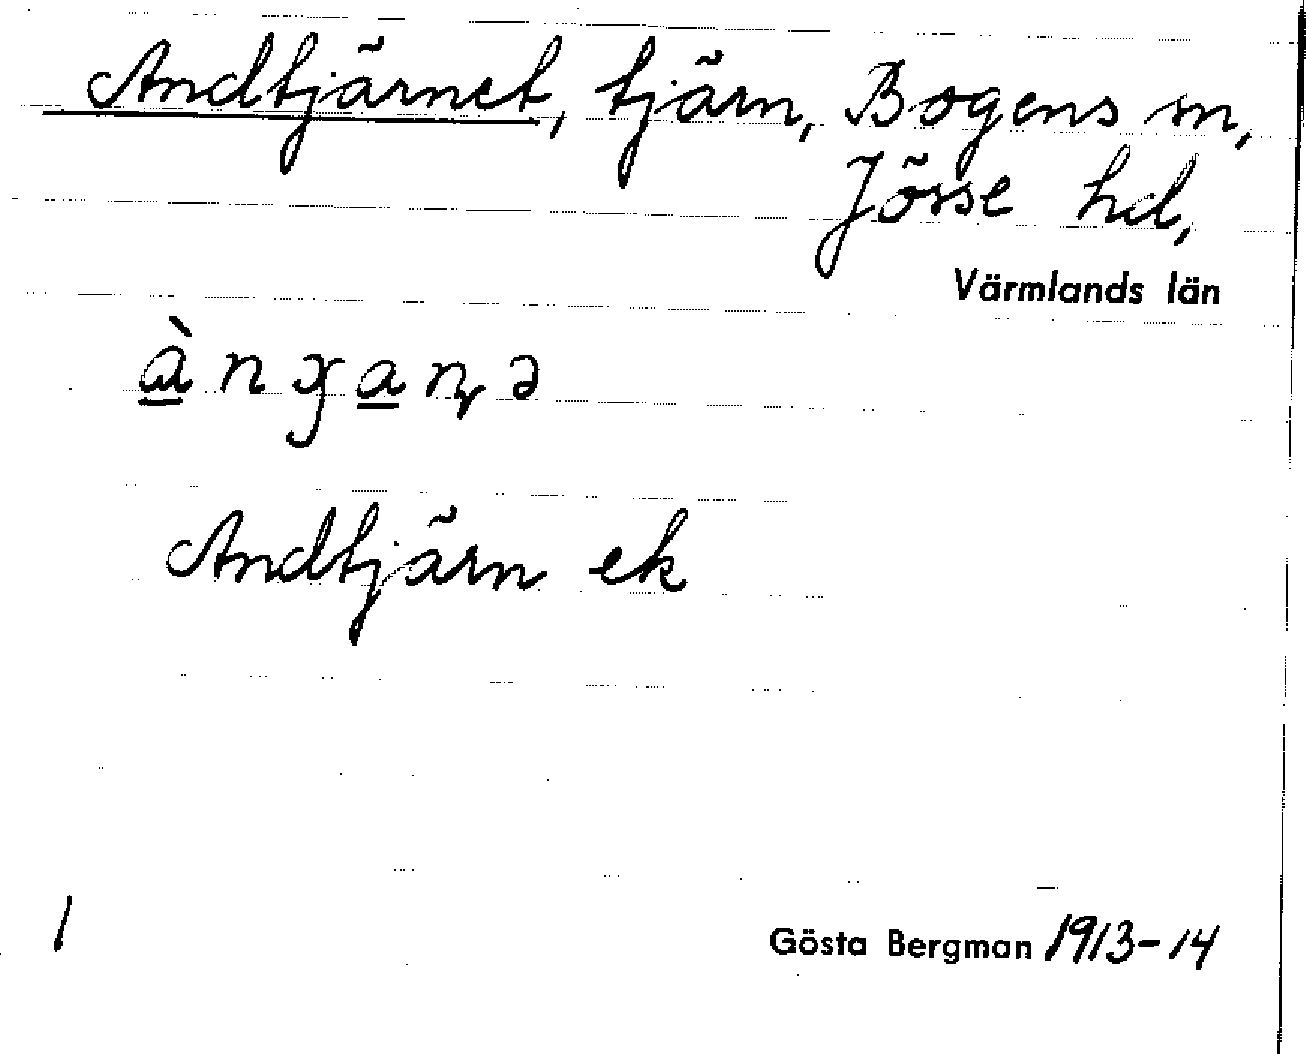 Andtjärnet, tjärn, Bogens sn,
Jösse hd,
Värmlands län
Andtjärn ek
1
Gösta Bergman 1913-14